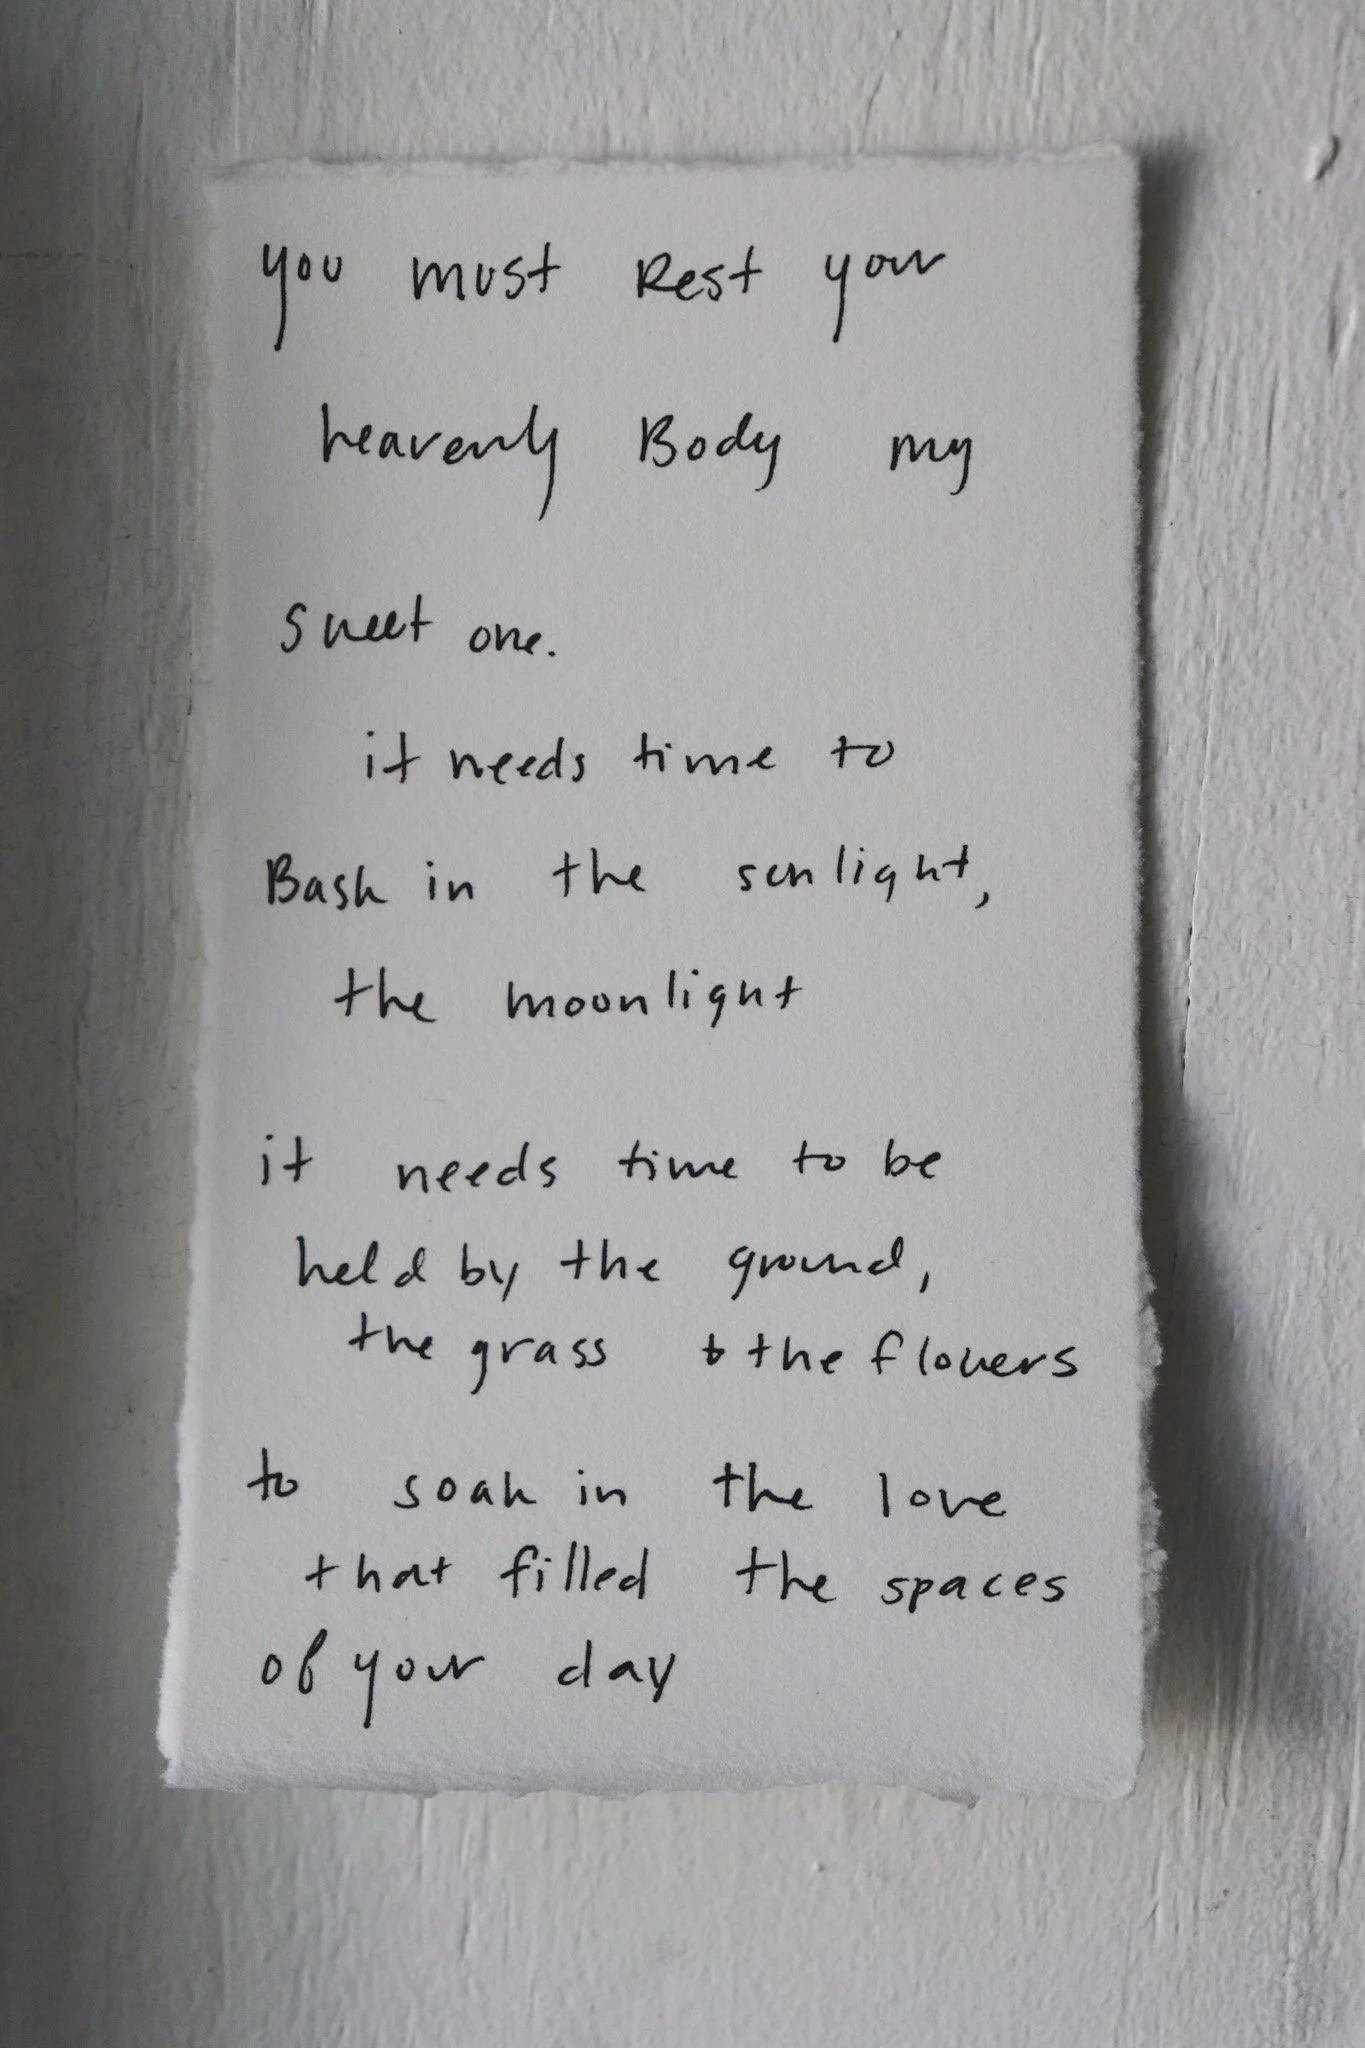 you must Rest your
heavenly Body my
sweet one.
it needs time to
Bask in the sunlight,
the moonlight
it needs time to be
held by the ground,
the grass + the flowers
to soak in the love
that filled the spaces
of your day